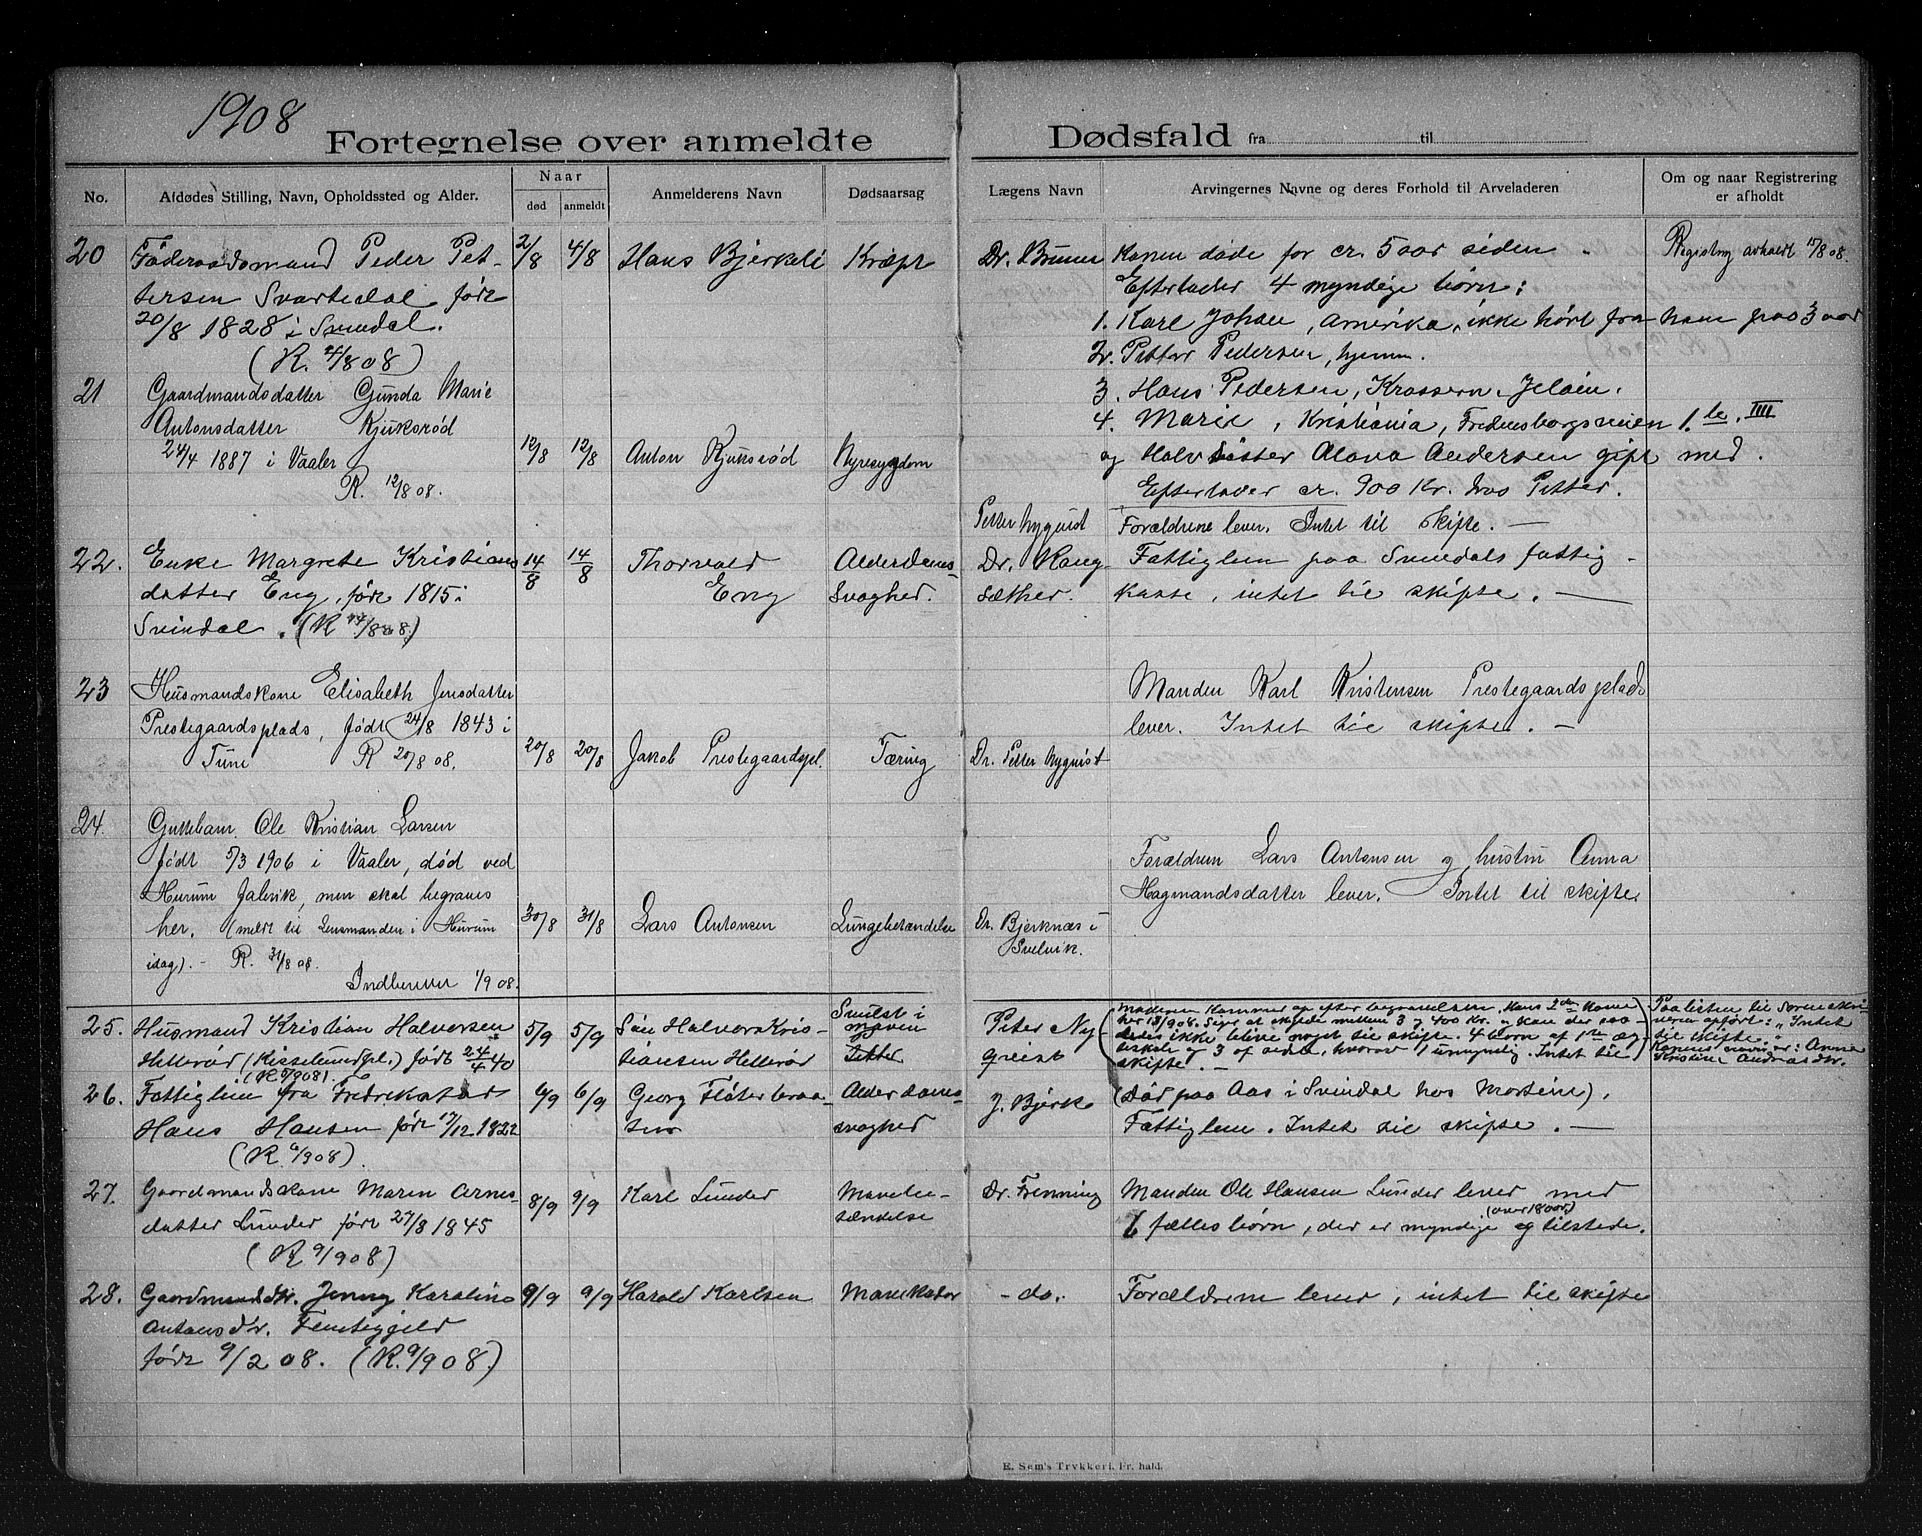 1908
Fortegnelse over anmeldte Dødsfald fra til
No.
Afdødes Stilling, Navn, Opholdssted og Alder.
Naar
død
anmeldt
Anmelderens Navn
Dødsaarsag
Lægens Navn
Arvingernes Navne og deres Forhold til Arveladeren
Om og naar Registrering
er afholdt
20
Føderaadsmand Peder Pet-
tersen Svartedal født
20/8 1828 i Svindal.
(R. 4/8 08)
2/8
4/8
Hans Bjerkeli
Kræft
Dr. Bruner
Konen døde for cr. 5 aar siden.
Efterlader 4 myndige børn:
1. Karl Johan, Amerika, ikke hørt fra ham paa 3 aar
2. Petter Pedersen, hjemme.
3. Hans Pedersen, Krossern, Jeløen.
4. Marie, Kristiania, Fredensborgsveien 1. te. III
og Halvsøster Alova Andersen gift med.
Efterlader cr. 900 Kr. hos Petter.
Registrering avholdt 17/8 08.
21
Gaardmandsdatter Gunda Marie
Antonsdatter Kjuksrød
24/4 1887 i Vaaler
R. 12/8 08.
12/8
12/8
Anton Kjuksrød
Nyresygdom
Petter Nyquist
Forældrene lever. Intet til Skifte. —
22.
Enke Margrete Kristians
datter Eng, født 1815 i
Svindal. (R 14/8 08.)
14/8
14/8
Thorvald
Eng
Alderdoms-
svaghed.
Dr. Haug-
sæther.
Fattiglem paa Svindals fattig-
kasse, intet til skifte. —
23
Husmandskone Elisabeth Jensdatter
Prestegaardsplads, født 24/8 1843 i
Tune R 20/8 08.
20/8
20/8
Jakob Prestegaardspl.
Tæring
Dr. Petter Nyquist
Manden Karl Kristensen Prestegaardsplads
lever. Intet til skifte. —
24.
Guttebarn Ole Kristian Larsen
født 5/3 1906 i Vaaler, død ved
Hurum, men skal begraves
her. (meldt til Lensmanden i Hurum
idag). - R. 31/8 08.
Indberettet 1/9 08.
30/8
31/8
Lars Antonsen
Lungebetændelse
Dr. Bjerknæs i
Svelvik.
Forældrene Lars Antonsen og hustru Anna
Hagmandsdatter lever. Intet til skifte.
25.
Husmand Kristian Halvorsen
Hellerød (Kisselundpl.) født 24/4 40
(R 5/9 08).
5/9
5/9
Søn Halvor Kris-
tiansen Hellerød
Svulst i
maven
Peter Ny-
qvist
kommer op efter begravelsen. Hans 2den Kone
var 13/9 08. Siger at skylde mellem 3 og 400 Kr.
ikke blive noget til skifte. 4 børn af 1ste æg-
teskab og 3 af sidste, hvorav 1 umyndig. Intet til
skifte. —
Paalisten til Sorenskri-
veren opført: "Intet
til skifte."
Konens navn er: Anna
Kristine Andreasdtr.
26.
Fattiglem fra Fredrikstad
Hans Hansen født 17/12 1822
(R. 6/9 08).
6/9
6/9
Georg Fløterbraa-
ten
Alderdoms-
svaghed
J. Bjerke
(Død paa Aas i Svindal hos Mortein).
Fattiglem. Intet til skifte. —
27.
Gaardmandskone Maren Arnes-
datter Lunder født 27/8 1845
(R 9/9 08)
8/9
9/9
Karl Lunder
Mavebe-
tændelse
Dr. Frenning
Manden Ole Hansen Lunder lever med
6 fælles børn, der er myndige (over 18 aar) og tilstede.
28.
Gaardmandsdtr. Jenny Karoline
Antonsdtr. Fenteggjeld
født 9/2 08. (R. 9/9 08.)
9/9
9/9
Harald Karlsen
Mavekatar
- do.
Forældrene lever, intet til skifte
E. Sem's Trykkeri, Fr.hald.